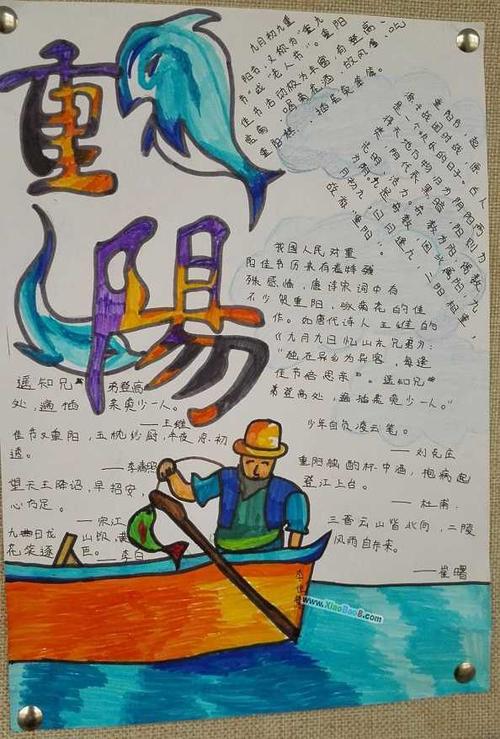 重
陽
九月初九重
阳节,又称为"重九
节"或"老人节"。重阳
佳节活动极为丰富,有登高、
赏菊、喝菊花酒、吃
重阳糕、插茱萸等。
重阳节,起
源于战国时战,原
是一个欢乐的日子。古人
将天地万物归为阴阳两
类,阴代表黑暗,阳则为
我国人民对重
阳佳节历来有着特殊
殊感情,唐诗宋词中有
不少贺重阳,咏菊花的佳
作。如唐代诗人王维的
《九月九日忆山东兄弟为:
"独在异乡为异客,每逢
佳节倍思亲"。遥知兄
弟登高处,遍插茱萸少一人。"
遥知兄弟登高
处,遍插茱萸少一人。
——王维
佳节又重阳,玉枕纱厨,半夜凉初
透。
——李清照
望天王降诏,早招安,
心方足。
——宋江
少年自负凌云笔。
——刘克庄
重阳独酌杯中酒,抱病起
登江上台。
——杜甫
三晋云山皆北向,二陵
风雨自东来。
——崔曙
www.XiaoBaoB.com